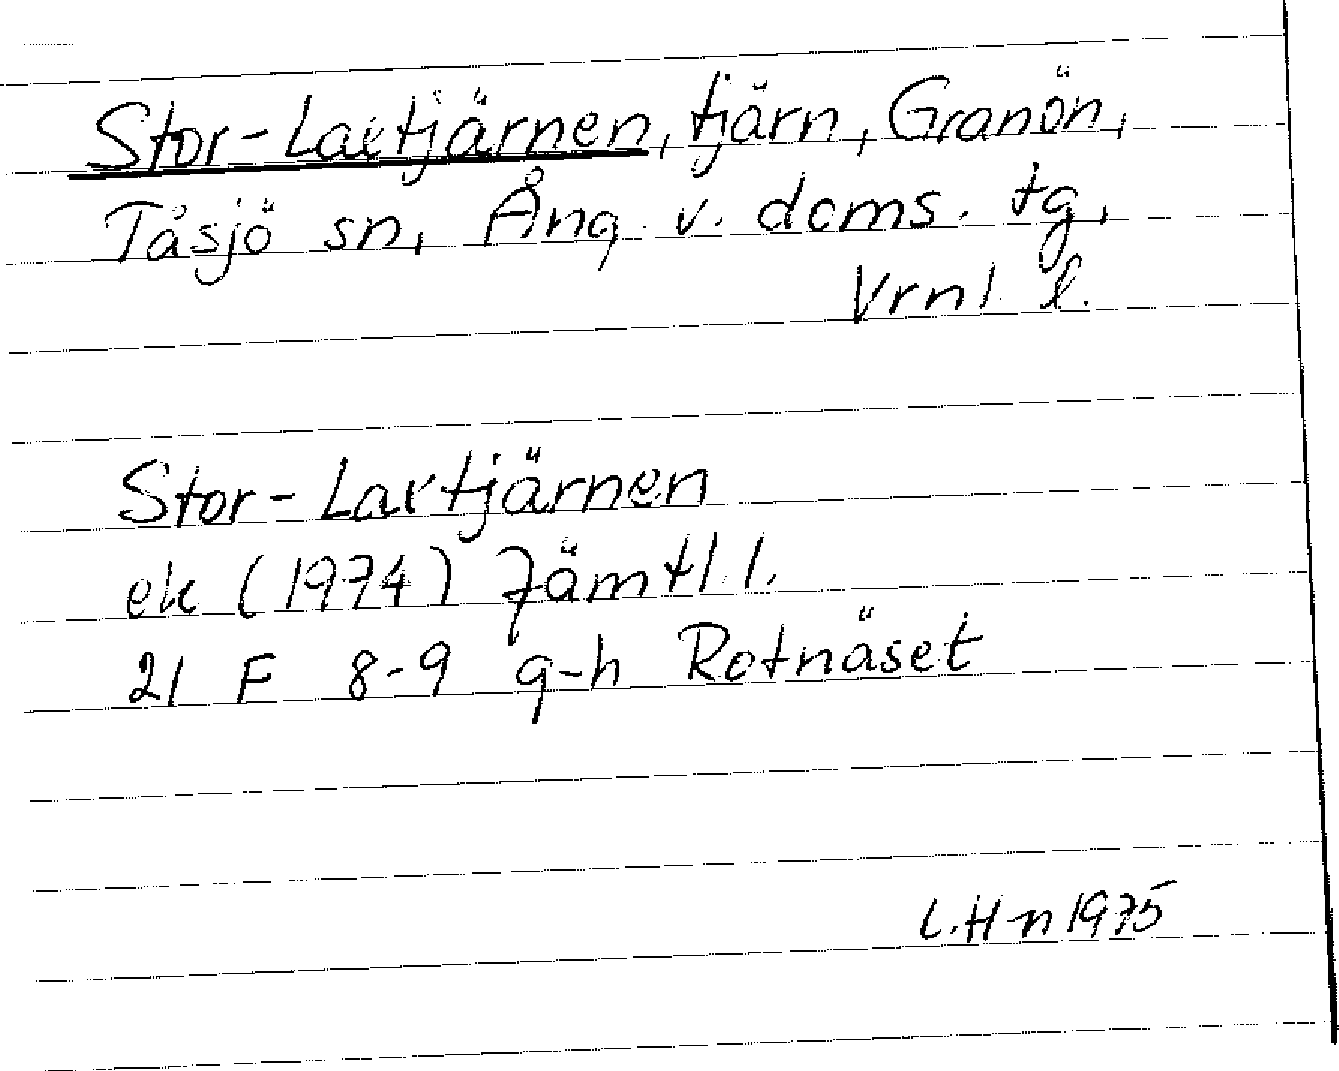 Stor-Laxtjärnen, tjärn, Granön,
Tåsjö sn, Ång. v. doms. tg,
Vrnl. l.
Stor-Laxtjärnen
ek (1974) Jämtl. l.
21 F 8-9 g-h Rotnäset
L.H-n 1975